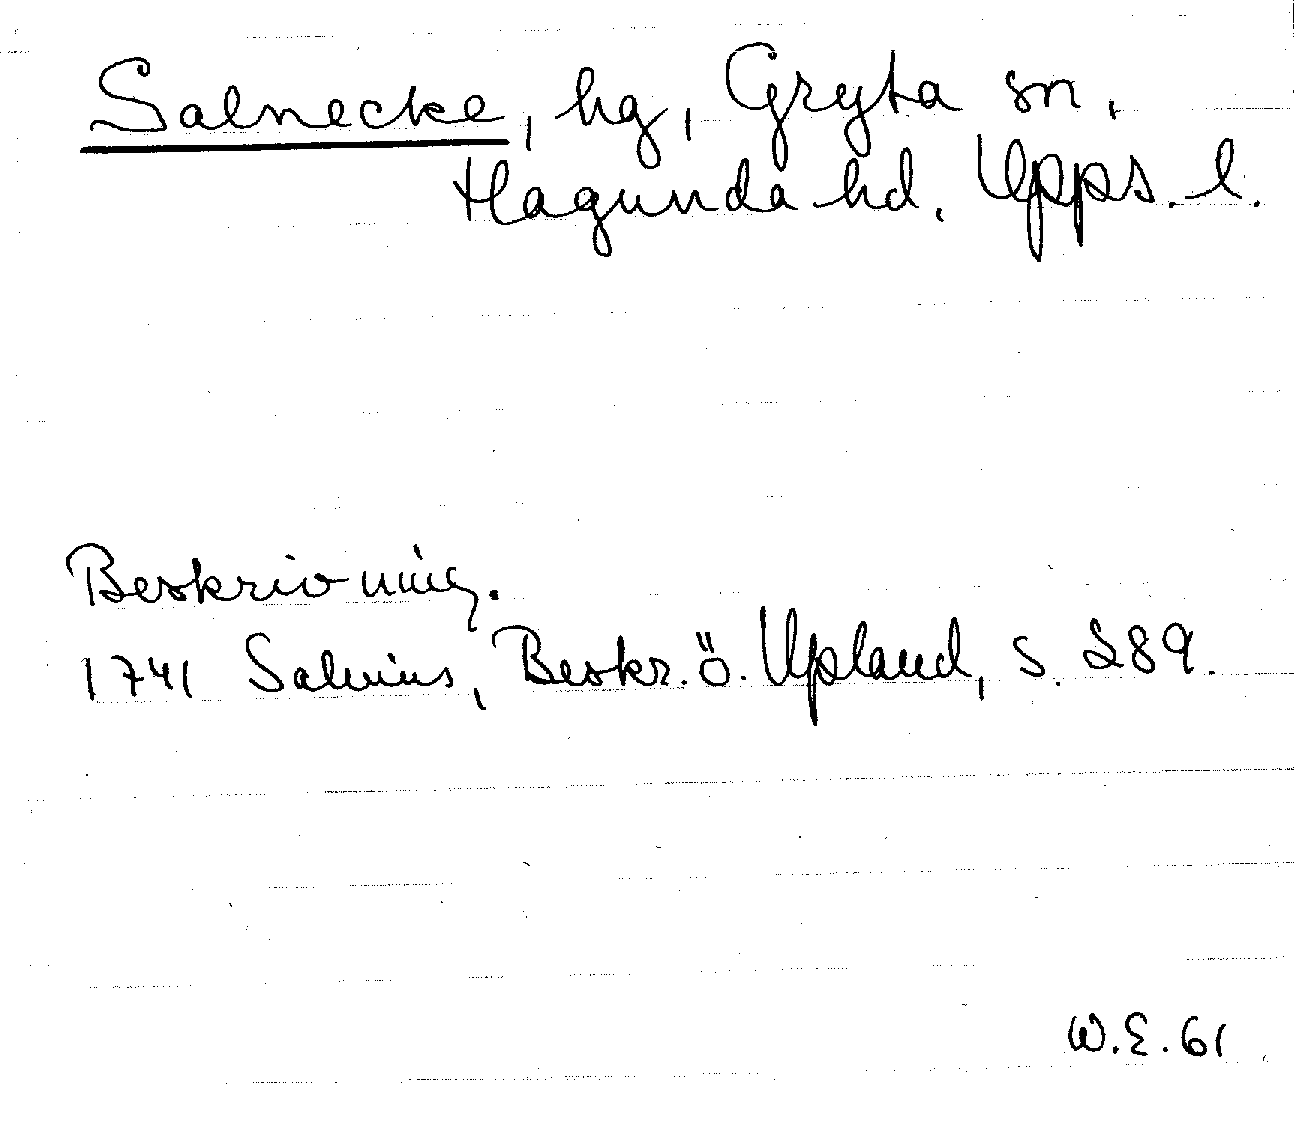 Salnecke, hg, Gryta sn,
Hagunda hd. Upps. l.
Beskrivning.
1741 Salvius, Beskr. ö. Upland, s. 289.
W.E. 61